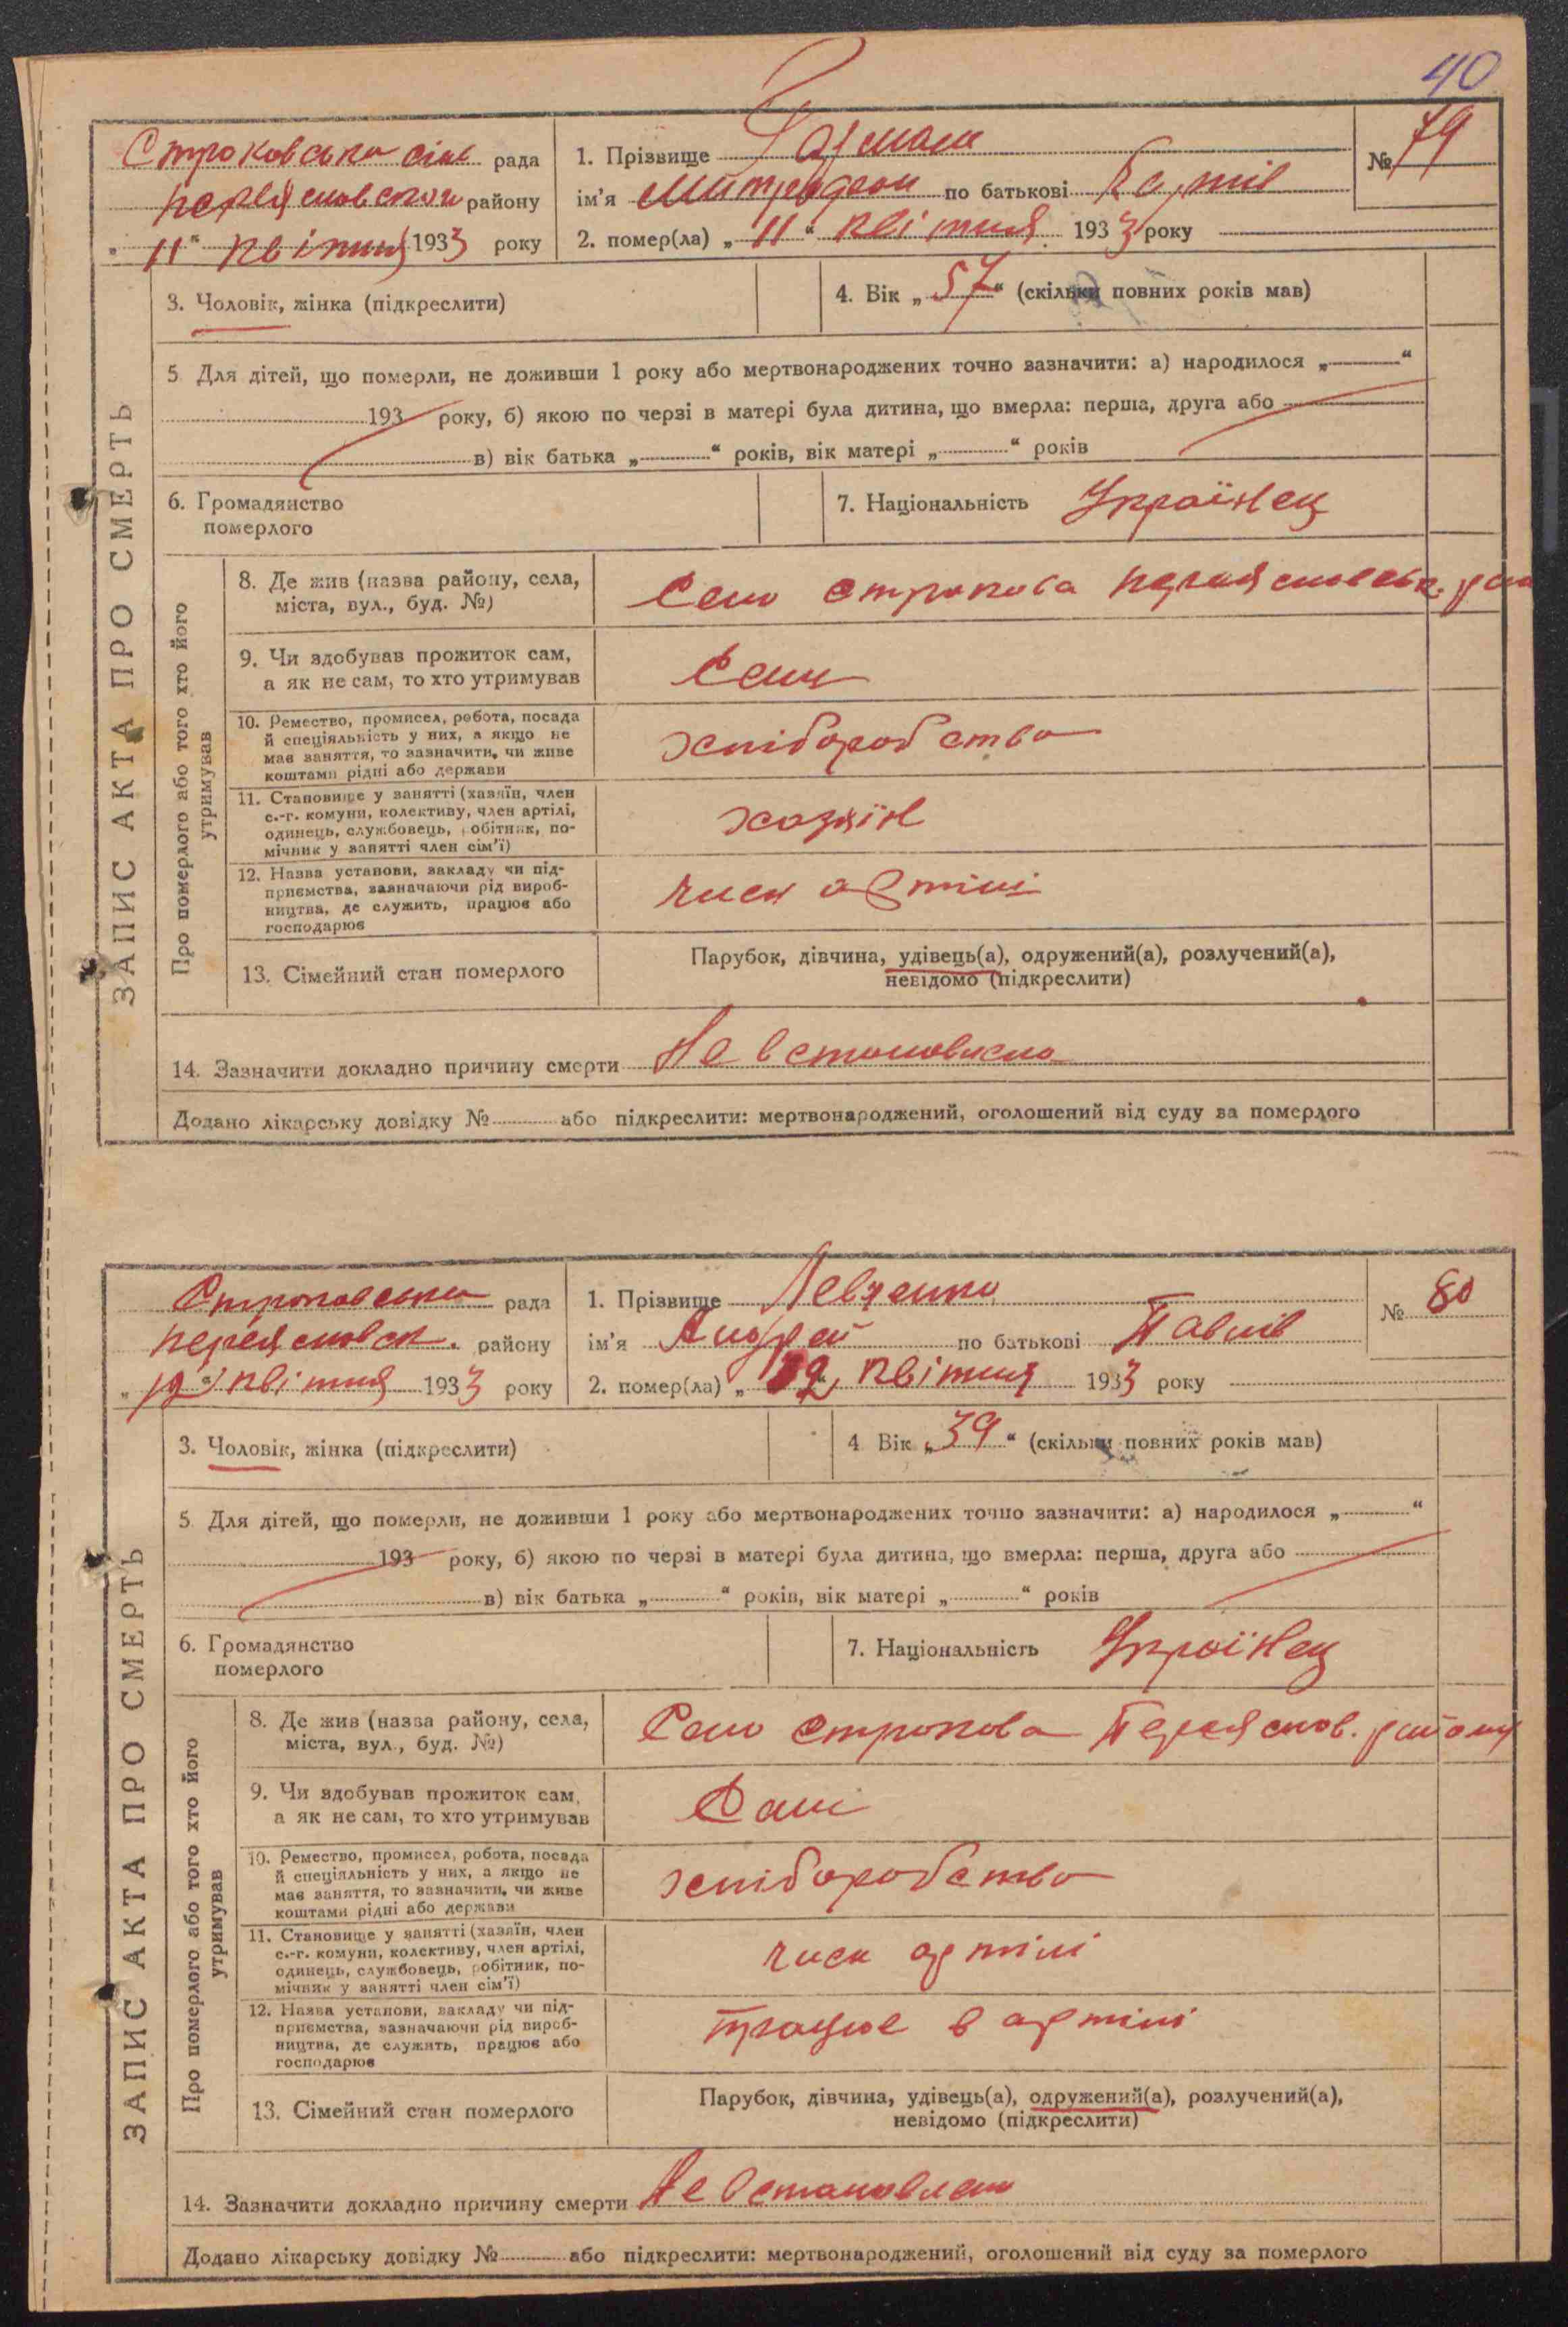 40
Строковська сіль рада
переясловского району
„11“ квітня 1933 року
1. Прізвище
ім'я Митрофан по батькові Карпів
2. помер(ла) „11“ квітня 1933 року
№ 79
3. Чоловік, жінка (підкреслити)
4. Вік „57“ (скільки повних років мав)
5 Для дітей, що померли, не доживши 1 року або мертвонароджених точно зазначити: а) народилося „ “
193 року, б) якою по черзі в матері була дитина, що вмерла: перша, друга або
в) вік батька „ “ років, вік матері „ “ років
6. Громадянство
померлого
7. Національність Українец
ЗАПИС АКТА ПРО СМЕРТЬ
Про померлого або того хто його
утримував
8. Де жив (назва району, села,
міста, вул., буд. №)
Село Строкова переясловськ. рай
9. Чи здобував прожиток сам,
а як не сам, то хто утримував
Сам
10. Ремество, промисел, робота, посада
й спеціяльність у них, а якщо не
має заняття, то зазначити, чи живе
коштами рідні або держави
хліборобство
11. Становище у занятті (хазяїн, член
с.-г. комуни, колективу, член артілі,
одинець, службовець, робітник, по-
мічник у занятті член сім'ї)
хазяїн
12. Назва установи, закладу чи під-
приємства, зазначаючи рід вироб-
ництва, де служить, працює або
господарює
член артілі
13. Сімейний стан померлого
Парубок, дівчина, удівець(а), одружений(а), розлучений(а),
невідомо (підкреслити)
14. Зазначити докладно причину смерти Не встановлено
Додано лікарську довідку № або підкреслити: мертвонароджений, оголошений від суду за померлого
Строковська рада
переясловск. району
„12“ квітня 1933 року
1. Прізвище Левченко
ім'я Андрей по батькові Павлів
2. помер(ла) „12“ квітня 1933 року
№ 80
3. Чоловік, жінка (підкреслити)
4 Вік „39“ (скільки повних років мав)
5. Для дітей, що померли, не доживши 1 року або мертвонароджених точно зазначити: а) народилося „ “
193 року, б) якою по черзі в матері була дитина, що вмерла: перша, друга або
в) вік батька „ “ років, вік матері „ “ років
6. Громадянство
померлого
7. Національність Українец
ЗАПИС АКТА ПРО СМЕРТЬ
Про померлого або того хто його
утримував
8. Де жив (назва району, села,
міста, вул., буд. №)
Село Строкова Переяслов. району
9. Чи здобував прожиток сам,
а як не сам, то хто утримував
Сам
10. Ремество, промисел, робота, посада
й спеціяльність у них, а якщо не
має заняття, то зазначити, чи живе
коштами рідні або держави
хліборобство
11. Становище у занятті (хазяїн, член
с.-г. комуни, колективу, член артілі,
одинець, службовець, робітник, по-
мічник у занятті член сім'ї)
член артілі
12. Назва установи, закладу чи під-
приємства, зазначаючи рід вироб-
ництва, де служить, працює або
господарює
працює в артілі
13. Сімейний стан померлого
Парубок, дівчина, удівець(а), одружений(а), розлучений(а),
невідомо (підкреслити)
14. Зазначити докладно причину смерти Не встановлено
Додано лікарську довідку № або підкреслити: мертвонароджений, оголошений від суду за померлого